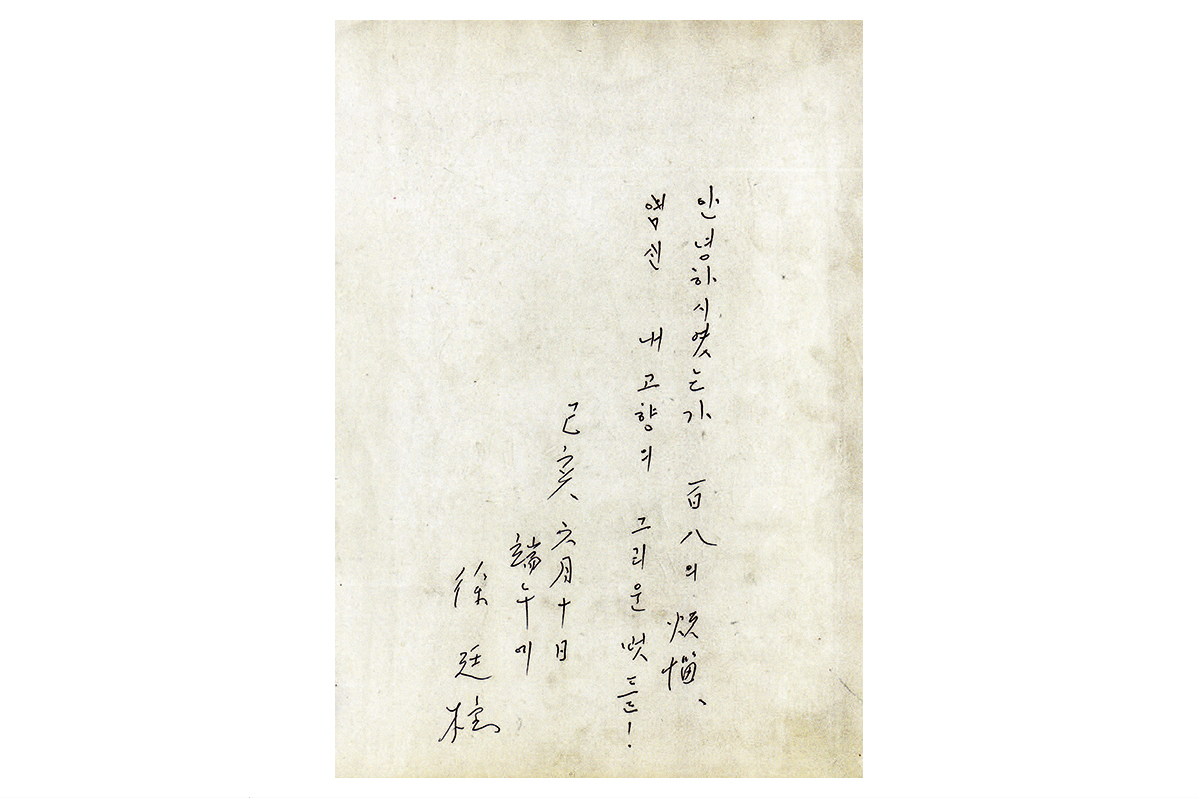 안녕하시였는가 百八의 煩惱、
내 고향의 그리운 벗들!
己亥 六月十日
端午에
徐廷柱